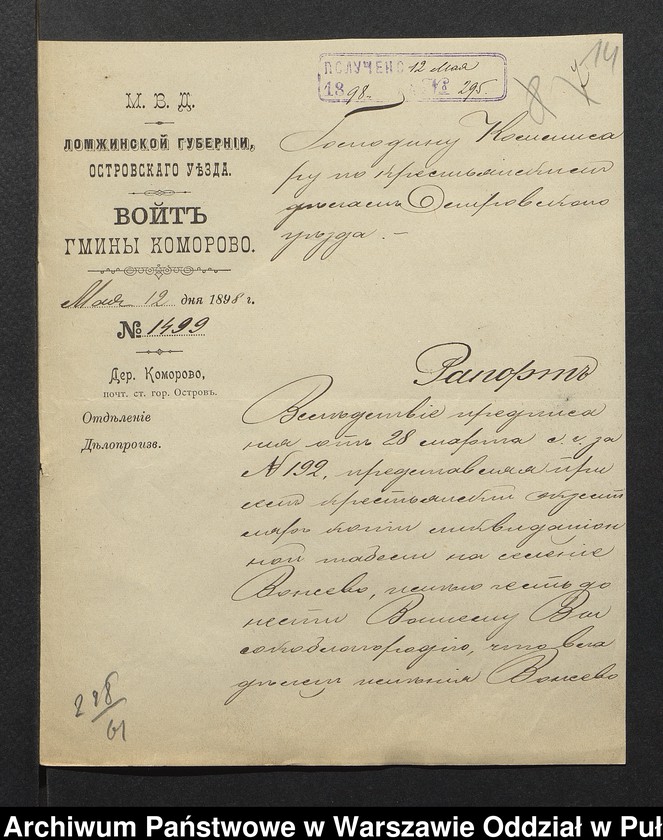 ПОЛУЧЕНО 12 Мая
1898 № 295.
14
М. В. Д.
ЛОМЖИНСКОЙ ГУБЕРНІИ,
ОСТРОВСКАГО УѢЗДА.
ВОЙТЪ
ГМИНЫ КОМОРОВО.
Мая 12 дня 1898 г.
№ 1499
Дер. Коморово,
почт. ст. гор. Островъ.
Отдѣленіе
Дѣлопроизв.
Господину Коммиса
ру по крестьянскимъ
дѣламъ Островскаго
уѣзда. –
Рапортъ
Вслѣдствіе предписа
нія отъ 28 марта с. г. за
№ 192, представляя при
семъ крестьянскій
копіи ликвидаціон
ной табели на селеніе
Вонсево, имѣю честь до
нести Вашему Вы
сокоблагородію, что вла
дѣлецъ имѣнія Вонсево
228/61
Archiwum Państwowe w Warszawie Oddział w Puł